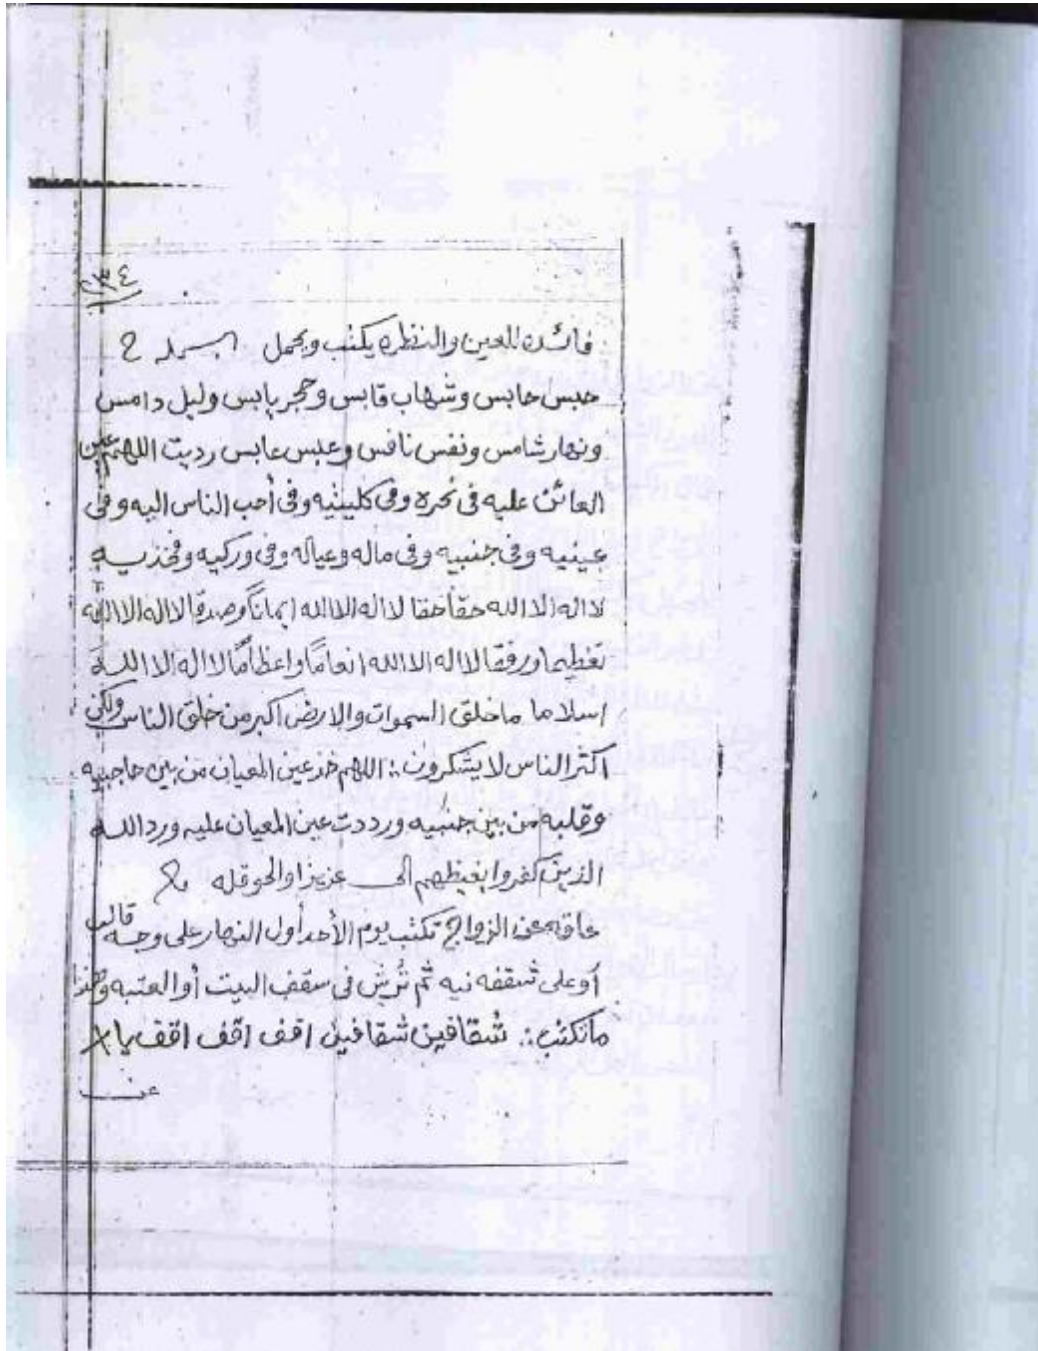 ٢٣٤
فائدة للعين والنظره يكتب ويحمل البسمله
حبس حابس وشهاب قابس وحجر يابس وليل دامس
ونهار شامس ونفس نافس وعبس عابس رديت اللهم عين
العائن عليه فى نحره وفى كليتيه وفى أحب الناس اليه وفى
عينيه وفى جنبيه وفى ماله وعياله وفى وركيه وفخذيه
لا اله الا الله حقاً حقا لا اله الا الله ايماناً وصدقا لا اله الا الله
تعظيما ورفقا لا اله الا الله انعاماً واعظاماً لا اله الا الله
اسلاما ما خلق السموات والارض اكبر من خلق الناس ولكن
اكثر الناس لا يشكرون :. اللهم خذ عين المعيان من بين حاجبيه
وقلبه من بين جنبيه ورددت عين المعيان عليه ورد الله
الذين كفروا بغيظهم الى عزيزا والحوقله
عاقه عن الزواج تكتب يوم الأحد أول النهار على وجه قالب
أو على شقفه نيه ثم ترش فى سقف البيت أو العتبه وهذا
ما تكتب :. شقافين شقافين اقف اقف اقف يا
عن